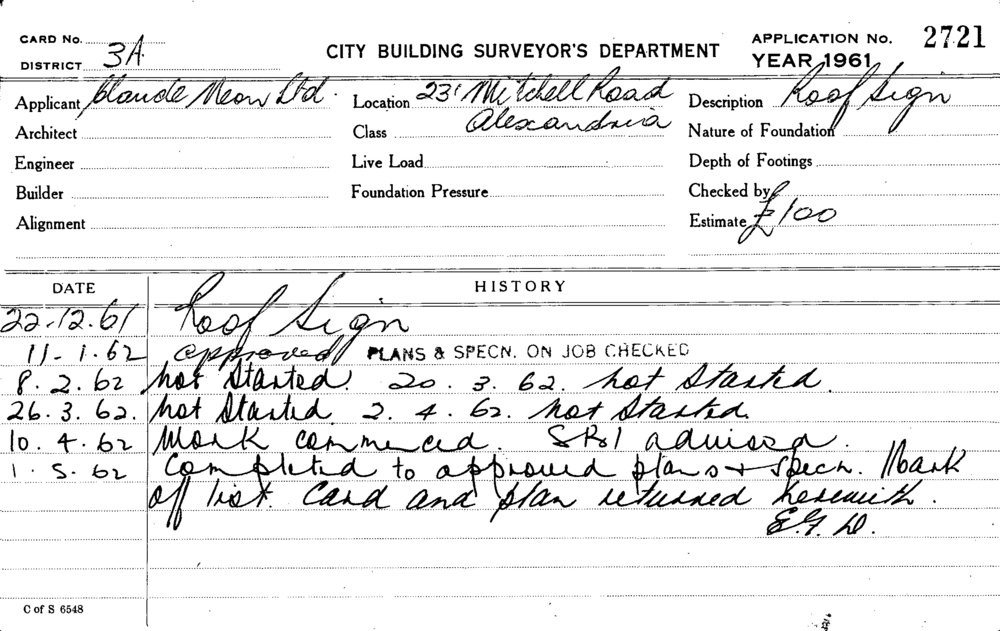 CARD No.
DISTRICT 3A
CITY BUILDING SURVEYOR'S DEPARTMENT
APPLICATION No. 2721
YEAR 1961
Applicant Claude Neon Ltd. Location 23 Mitchell Road Description Roof Sign
Architect Class Alexandria Nature of Foundation
Engineer Live Load Depth of Footings
Builder Foundation Pressure Checked by
Alignment Estimate £100
DATE HISTORY
22.12.61 Roof Sign
11-1.62 approved PLANS & SPECN. ON JOB CHECKED
8.2.62 not started. 20.3.62. not started.
26.3.62. not started 2.4.62. not started.
10.4.62 Work commenced. SRI advised.
1.5.62 Completed to approved plans + specn. Mark
off list. Card and plan returned herewith.
E.G.D.
C of S 6548